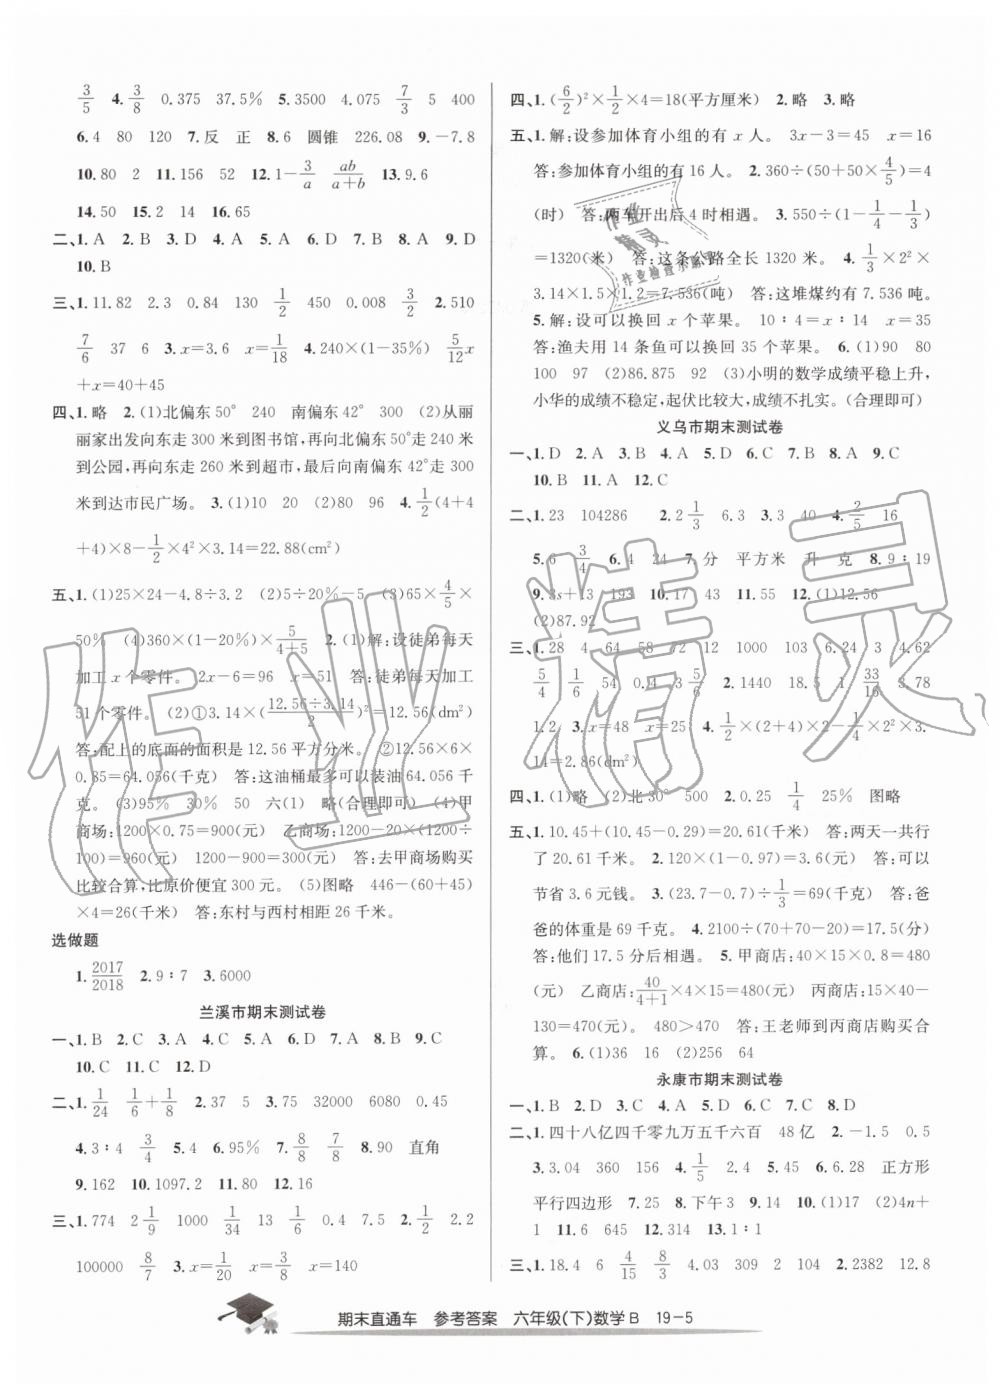 3/5 4. 3/8 0.375 37.5% 5.3500 4.075 7/3 5 400
6.4 80 120 7.反 正 8.6 圆锥 226.08 9.-7.8
10.80 2 11.156 52 12.1-3/a ab/(a+b) 13.9.6
14.50 15.2 14 16.65
二、1.A 2.B 3.D 4.A 5.A 6.D 7.B 8.A 9.D
10.B
三、1.11.82 2.3 0.84 130 1/2 450 0.008 3/2 2.510
7/6 37 6 3.x=3.6 x=1/18 4.240×(1-35%) 5/12x
+x=40+45
四、1.略 2.(1)北偏东50° 240 南偏东42° 300 (2)从丽
丽家出发向东走 300 米到图书馆,再向北偏东50°走 240 米
到公园,再向东走 260 米到超市,最后向南偏东42°走 300
米到达市民广场。 3.(1)10 20 (2)80 96 4.1/2(4+4
+4)×8-1/2×4²×3.14=22.88(cm²)
五、1.(1)25×24-4.8÷3.2 (2)5÷20%-5 (3)65×4/5×
50% (4)360×(1-20%)×5/(4+5) 2.(1)解:设徒弟每天
加工 x 个零件。 2x-6=96 x=51 答:徒弟每天加工
51 个零件。 (2)①3.14×(12.56÷3.14/2)²=12.56(dm²)
答:配上的底面的面积是 12.56 平方分米。 ②12.56×6×
0.85=64.056(千克) 答:这油桶最多可以装油 64.056 千
克。 (3)95% 30% 50 六(1) 略(合理即可) (4)甲
商场:1200×0.75=900(元) 乙商场:1200-20×(1200÷
100)=960(元) 1200-900=300(元) 答:去甲商场购买
比较合算,比原价便宜 300 元。 (5)图略 446-(60+50)
×4=26(千米) 答:东村与西村相距 26 千米。
选做题
1.2017/2018 2.9∶7 3.6000
兰溪市期末测试卷
一、1.B 2.C 3.A 4.C 5.A 6.D 7.B 8.B 9.C
10.C 11.C 12.D
二、1.1/24 1/6+1/8 2.37 5 3.75 32000 6080 0.45
4.3∶4 3/4 5.4 6.95% 7.8/8 7/8 8.90 直角
9.162 10.1097.2 11.80 12.16
三、1.774 2 1/9 1000 1/34 13 1/6 0.4 7.5 2.1/2 2.2
100000 8/7 3.x=1/20 x=3/8 x=140
四、1.(6/2)²×1/2×4=18(平方厘米) 2.略 3.略
五、1.解:设参加体育小组的有 x 人。 3x-3=45 x=16
答:参加体育小组的有 16 人。 2.360÷(50+50×4/5)=4
(时) 答:两车开出后 4 时相遇。 3.550÷(1-1/4-1/3)
=1320(米) 答:这条公路全长 1320 米。 4.1/3×2²×
3.14×1.5×1.2=7.536(吨) 答:这堆煤约有 7.536 吨。
5.解:设可以换回 x 个苹果。 10∶4=x∶14 x=35
答:渔夫用 14 条鱼可以换回 35 个苹果。 6.(1)90 80
100 97 (2)86.875 92 (3)小明的数学成绩平稳上升,
小华的成绩不稳定,起伏比较大,成绩不扎实。(合理即可)
义乌市期末测试卷
一、1.D 2.A 3.B 4.A 5.D 6.C 7.B 8.A 9.C
10.B 11.A 12.C
二、1.23 104286 2.2 1/3 6.3 3.3 40 4.2/5 16
5.6 3/4 6.4 24 7.分 平方米 升 克 8.9∶19
9.3s+13 193 10.17 43 11.55 12.(1)12.56
(2)87.92
三、1.28 4 64 58 2 1000 103 4.62
5/4 1/6 54 0.4 5/6 2.1440 18.5 1 33/16 3.78
1.2 3.x=48 x=25 4.1/2×(2+4)×2-1/4×2²×3.
14=2.86(dm²)
四、1.(1)略 (2)北30° 500 2.0.25 1/4 25% 图略
五、1.10.45+(10.45-0.29)=20.61(千米) 答:两天一共行
了 20.61 千米。 2.120×(1-0.97)=3.6(元) 答:可以
节省 3.6 元钱。 3.(23.7-0.7)÷1/3=69(千克) 答:爸
爸的体重是 69 千克。 4.2100÷(70+70-20)=17.5(分)
答:他们 17.5 分后相遇。 5.甲商店:40×15×0.8=480
(元) 乙商店:40/(4+1)×4×15=480(元) 丙商店:40×15-
130=470(元) 480>470 答:王老师到丙商店购买合
算。 6.(1)36 16 (2)256 64
永康市期末测试卷
一、1.B 2.D 3.C 4.A 5.D 6.C 7.C 8.D
二、1.四十八亿四千零九万五千六百 48亿 2.-1.5 0.5
3.3.04 360 15 4.1/5 2.4 5.45 6.6.28 正方形
平行四边形 7.25 8.下午3 9.14 10.(1)17 (2)4n+
1 11.6 645 12.314 13.1∶1
三、1.18.4 6 4/15 8/3 4.03 54 110 2.2382 12.8
期末直通车 参考答案 六年级(下)数学B 19-5
作业精灵
作业
精灵
作业检查小帮手